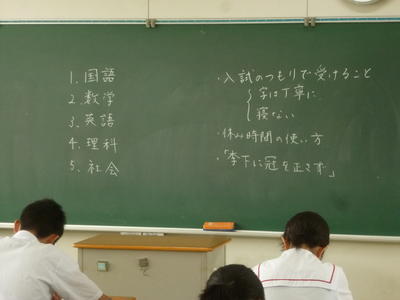 1. 国語
2. 数学
3. 英語
4. 理科
5. 社会
・入試のつもりで受けること
字は丁寧に
寝ない
・休み時間の使い方
・「李下に冠を正さず」